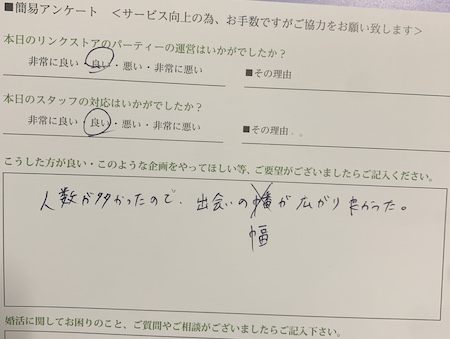 ■簡易アンケート ＜サービス向上の為、お手数ですがご協力をお願い致します＞
本日のリンクストアのパーティーの運営はいかがでしたか？
非常に良い・良い・悪い・非常に悪い ■その理由
本日のスタッフの対応はいかがでしたか？
非常に良い・良い・悪い・非常に悪い ■その理由
こうした方が良い・このような企画をやってほしい等、ご要望がございましたらご記入ください。
人数が多かったので、出会いの が広がり良かった。
幅
婚活に関してお困りのこと、ご質問やご相談がございましたらご記入下さい。